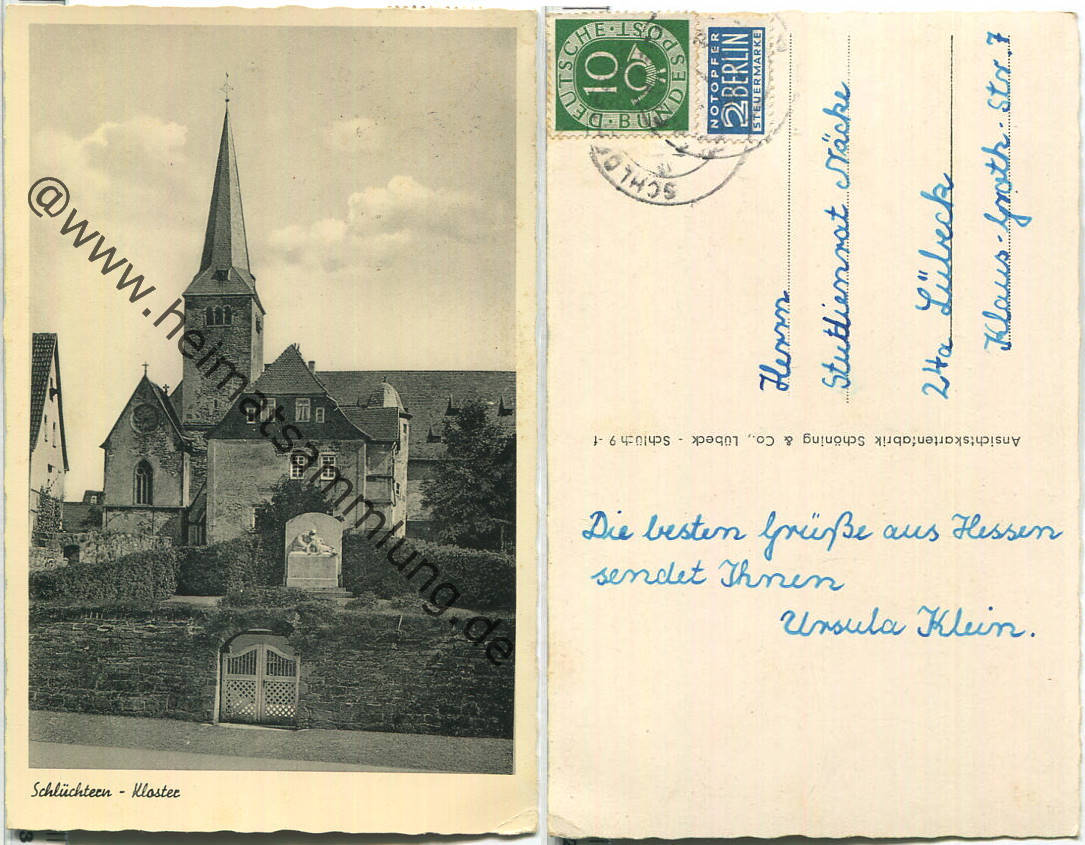 @www.heimatsammlung.de
Schlüchtern - Kloster
DEUTSCHE BUNDESPOST
10
NOTOPFER
2 BERLIN
STEUERMARKE
Herrn
Studienrat Näcke
24a Lübeck
Klaus-Groth-Str. 7
Ansichtskartenfabrik Schöning & Co., Lübeck - Schlüch 9 - f
Die besten Grüße aus Hessen
sendet Ihnen
Ursula Klein.